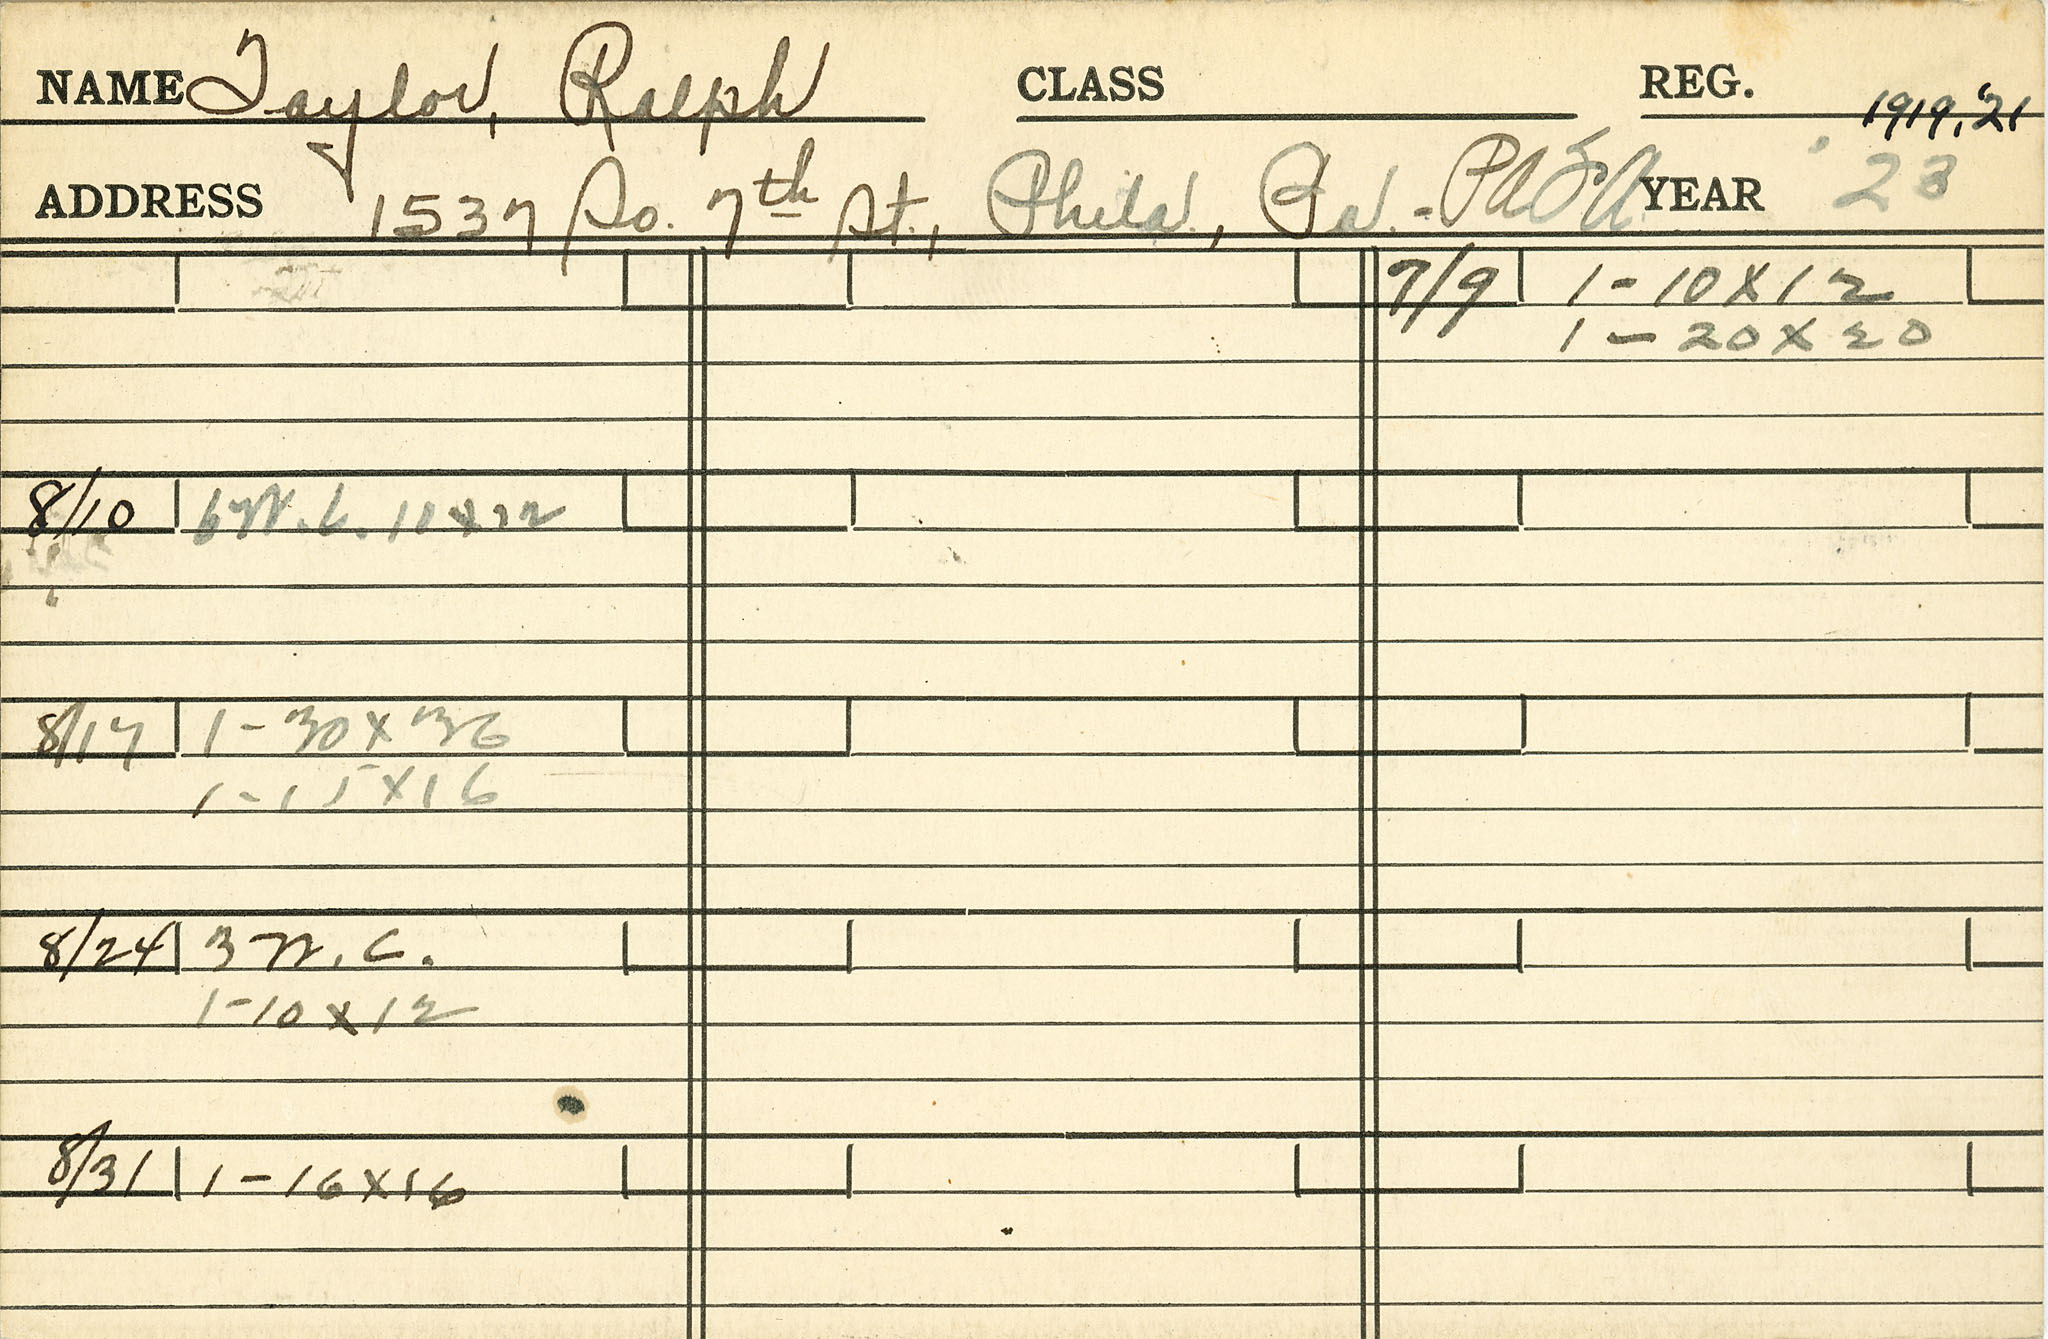 NAME Taylor, Ralph CLASS REG. 1919, '21
ADDRESS 1537 So. 7th St., Phila., Pa. - PAFA YEAR '23
7/9 1 - 10 X 12
1 - 20 X 20
8/10 W.C. 10 x 12
8/17 1 - 30 X 36
1 - 15 X 16
8/24 3 W.C.
1 - 10 X 12
8/31 1 - 16 X 16